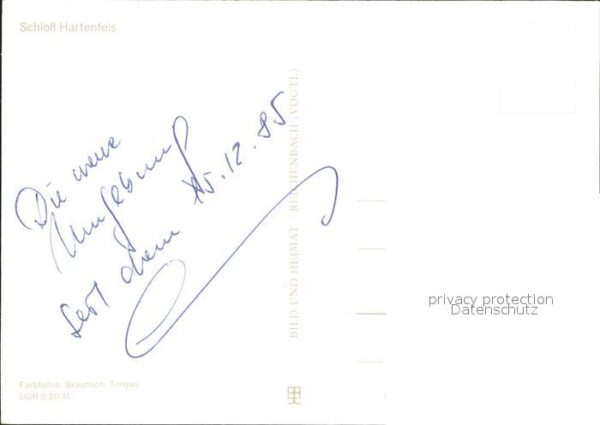 Schloß Hartenfels
Die neue
Umgebung
seit dem 15.12.85
BILD UND HEIMAT · REICHENBACH (VOGTL)
privacy protection
Datenschutz
Farbfotos: Bräunlich, Torgau
DDR 0,20 M